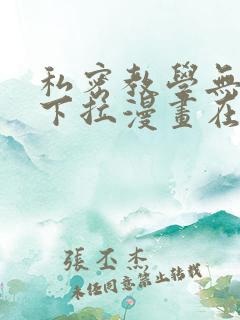 私密教學無
下拉漫畫在
張丕杰
未經同意禁止轉載